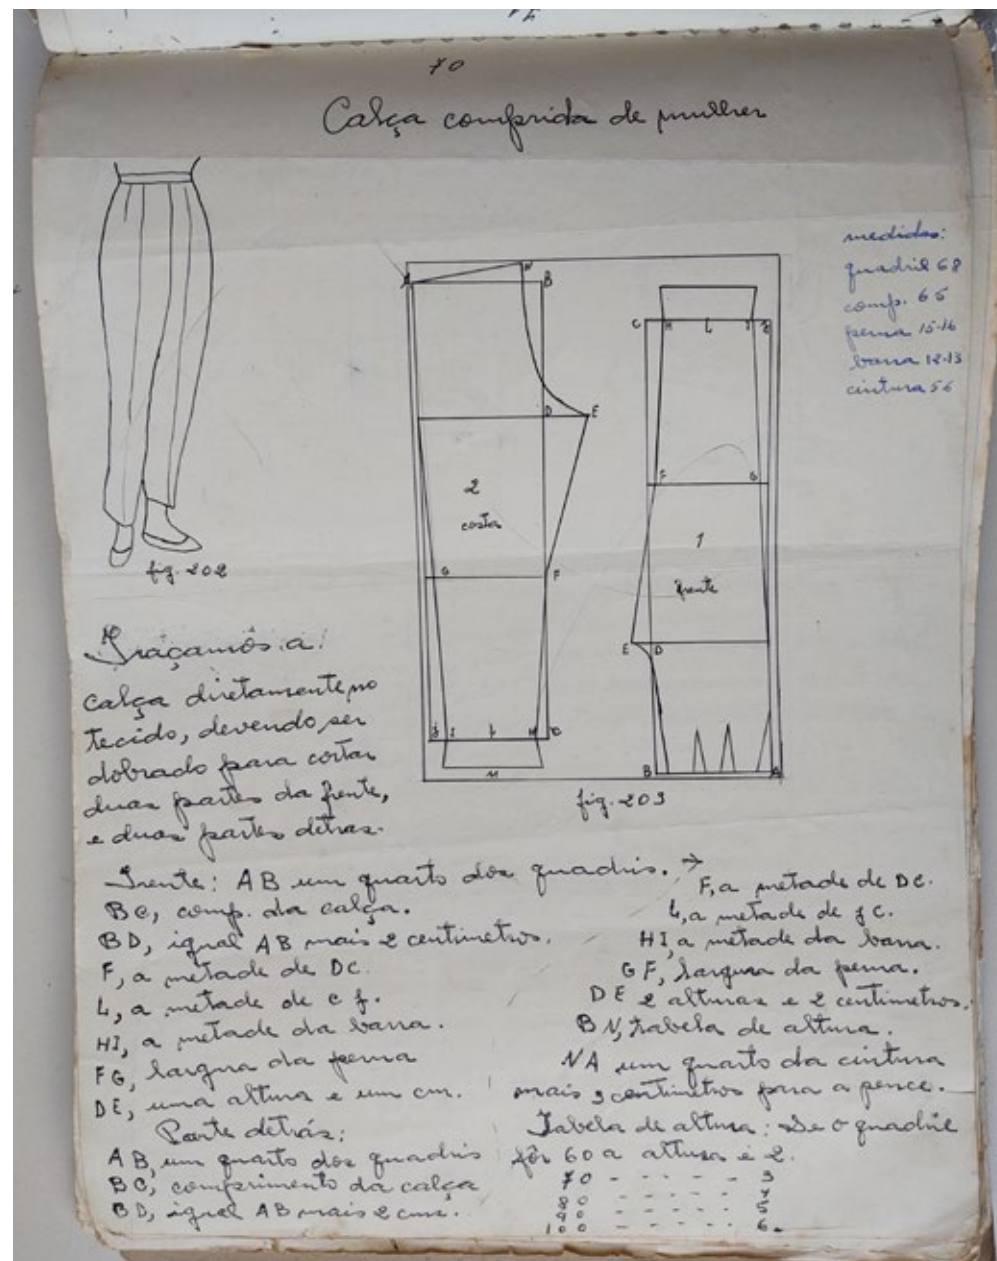 70
Calça comprida de mulher
medidas:
quadril 68
comp. 65
perna 15-16
barra 12-13
cintura 56
A N B
D E
2
costas
G F
J I L H C
M
C H L I J
F G
1
frente
E D
B A
fig. 202
fig. 203
Traçamos a
calça diretamente no
tecido, devendo ser
dobrado para cortar
duas partes da frente,
e duas partes detras.
Frente: AB um quarto dos quadris. →
BC, comp. da calça.
BD, igual AB mais 2 centimetros.
F, a metade de DC.
L, a metade de c j.
HI, a metade da barra.
FG, largura da perna
DE, uma altura e um cm.
Parte detrás:
AB, um quarto dos quadris
BC, comprimento da calça
BD, igual AB mais 2 cm.
F, a metade de DC.
L, a metade de j C.
HI, a metade da barra.
GF, largura da perna.
DE 2 alturas e 2 centimetros.
BN, tabela de altura.
NA um quarto da cintura
mais 3 centimetros para a pence.
Tabela de altura: Se o quadril
fôr 60 a altura é 2.
70 - - - - - 3
80 - - - - - 4
90 - - - - - 5
100 - - - - - 6.